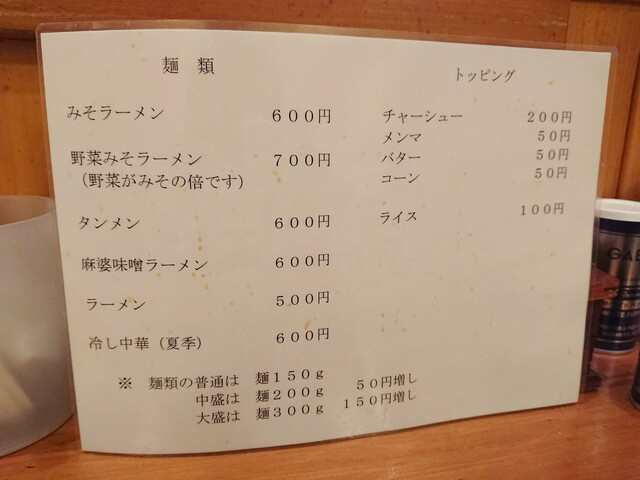 麺 類
みそラーメン ６００円
野菜みそラーメン ７００円
（野菜がみその倍です）
タンメン ６００円
麻婆味噌ラーメン ６００円
ラーメン ５００円
冷し中華（夏季） ６００円
※ 麺類の普通は 麺１５０ｇ
中盛は 麺２００ｇ ５０円増し
大盛は 麺３００ｇ １５０円増し
トッピング
チャーシュー ２００円
メンマ ５０円
バター ５０円
コーン ５０円
ライス １００円